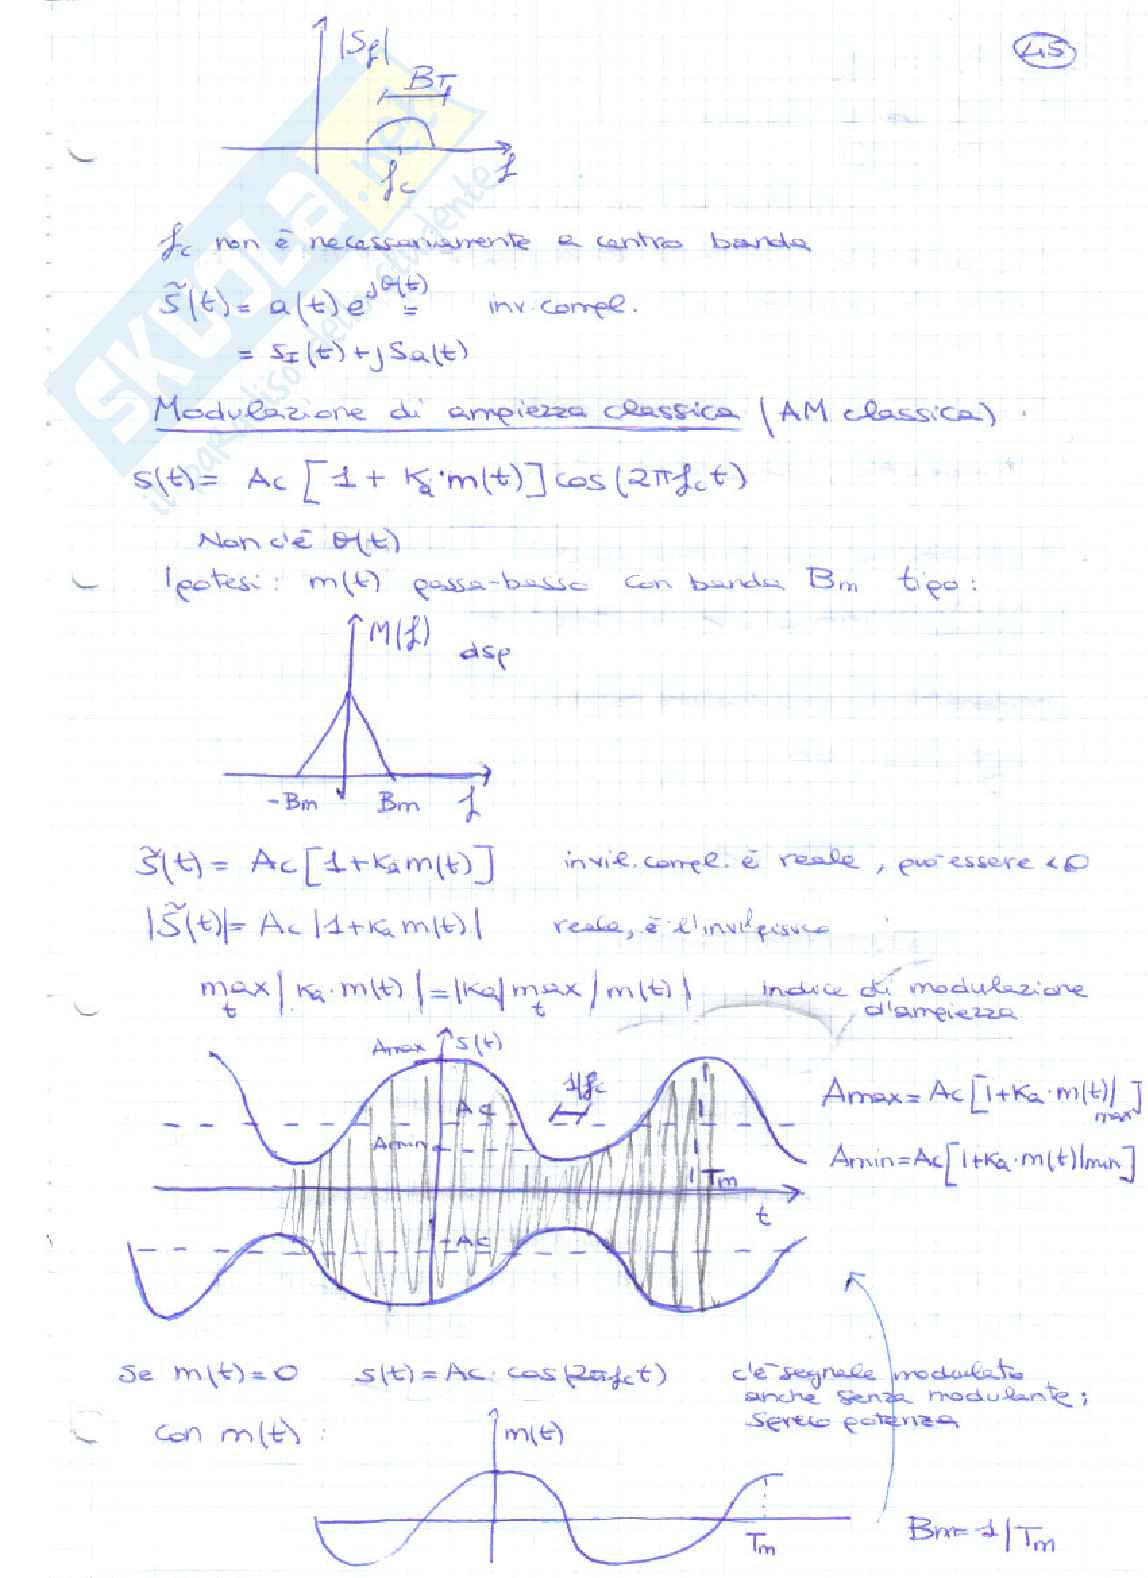 45
|S_f|
B_T
f_c
f
f_c non è necessariamente a centro banda
s̃(t) = a(t) e^{jθ(t)} = inv. compl.
= s_I(t) + j s_Q(t)
Modulazione di ampiezza classica (AM classica)
s(t) = Ac [1 + Ka·m(t)] cos(2πf_c t)
Non c'è θ(t)
Ipotesi: m(t) passa-basso con banda Bm tipo:
M(f) dsp
-Bm Bm f
s̃(t) = Ac [1+Ka m(t)] invil. compl. è reale, può essere <0
|s̃(t)| = Ac |1+Ka m(t)| reale, è l'inviluppo
max_t |Ka·m(t)| = |Ka| max_t |m(t)| indice di modulazione
d'ampiezza
Amax s(t)
1/f_c
Ac
Amin
Amax = Ac [1+Ka·m(t)|max]
Amin = Ac [1+Ka·m(t)|min]
Tm
t
-Ac
Se m(t)=0 s(t) = Ac·cos(2πf_c t) c'è segnale modulato
anche senza modulante;
spreco potenza
con m(t):
m(t)
Tm
Bm = 1/Tm
SKUOLA.net
il paradiso dello studente